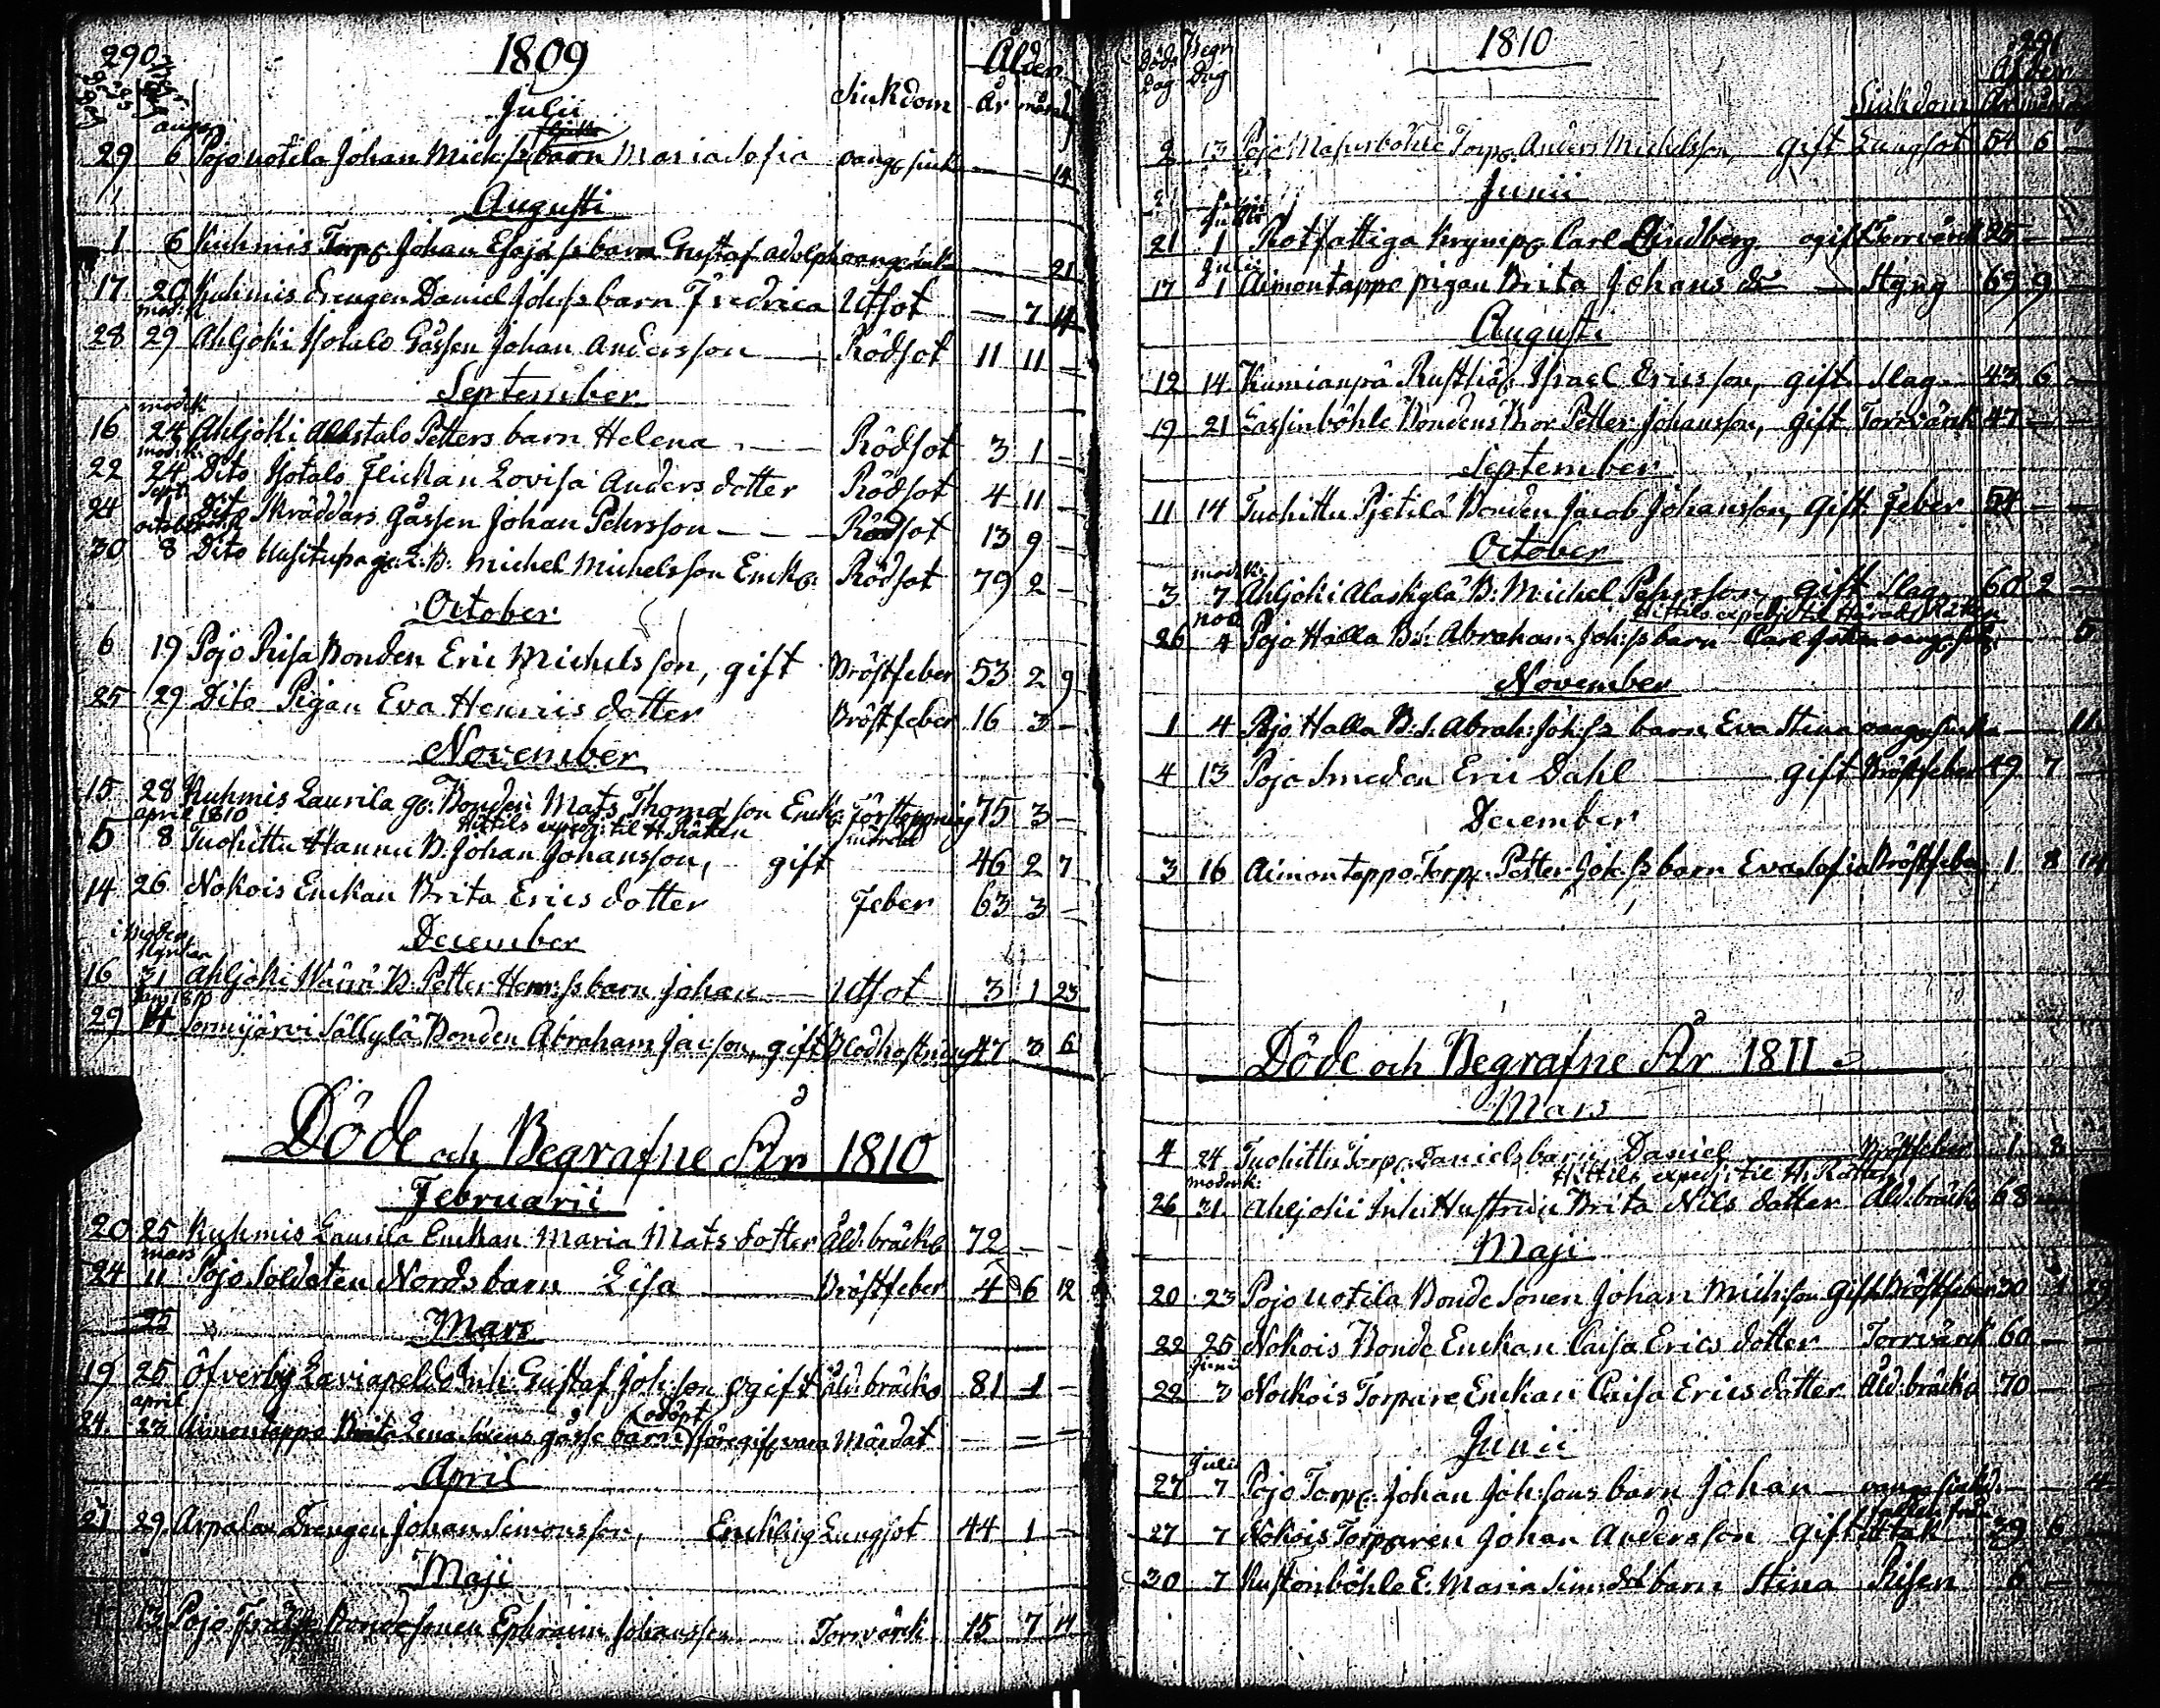 290
1809
Ålder
Julii
Siukdom År månad
aug
29 6 Pojo uotila Johan Mich:ss barn Maria Sofia oange siuk — — 14
Augusti
1 6 Kuhmis Torp: Johan Esaja ss barn Gustaf adolph oange siuk — — 21
17 20 Kuhmis drengen Daniel Joh:ss barn Fredrica Utsot — 7 14
mod:k
28 29 Ahljoki Isotalo Gåssen Johan Andersson — Rödsot 11 11 —
September
mod:k
16 24 Ahljoki Allstalo Petters barn Helena — Rödsot 3 1 —
mod:k
22 24 Dito Isotalo Flickan Lovisa Anders dotter Rödsot 4 11 —
Sept:
24 Dito Skräddars Gåssen Johan Pehrsson — — Rödsot 13 9 —
october
30 8 Dito Uusitupa ge: B: Michel Michelsson Enck: Rödsot 79 2 —
October
6 19 Pojo Risa Bonden Eric Michelsson, gift Bröstfeber 53 2 9
25 29 Dito Pigan Eva Henrics dotter Bröstfeber 16 3 —
November
15 28 Kuhmis Laurila ge: Bonden Mats Thomasson Enck: Förstoppning 75 3 —
april 1810 Hittils exped: til H. Rätten
5 8 Tuohittu Hannu B. Johan Johansson, gift 46 2 7
14 26 Nokois Enckan Brita Erics dotter Feber 63 3 —
December
i moder kyrkan
16 31 Ahljoki Wännä B. Petter Henr:ss barn Johan — Utsot 3 1 23
Jan: 1810
29 14 Lermijärvi Sällylä Bonden Abraham Jacson, gift Blodhostning 47 3 6
Döde och Begrafne År 1810
Februarii
20 25 Kuhmis Laurila Enckan Maria Mats dotter Åld: bräcka 72 — —
mars
24 11 Pojo Soldaten Nords barn Lisa — Bröstfeber 4 6 12
25
Mars
19 25 Öfverby Laviapelldo Inh: Gustaf Joh:son Ogift Åld: bräcka 81 1 —
april odöpt
24 23 Aimontappo Brita Lena gåsse barn föregifvara Mördat — — —
April
21 29 Arpalax Drengen Johan Simonsson, Enckling Lungsot 44 1 —
Maji
13 Pojo Frälse Bondesonen Ephraim Johansson — Torrvärck 15 7 14
Döde Dag Begr Dag
1810
291
Ålder
Siukdom År
2 13 Pojo Torp: Anders Michelsson, gift Lungsot 54 6 —
Junii
Julii
21 1 Rotfattiga Krympg: Carl Lindberg ogift Torrvärck 25 — —
Julii
17 1 Aimontappo pigan Brita Johans dr — Styng 69 9 —
Augusti
12 14 Kumianpä Rusthå: Israel Ericsson, gift Slag 43 6 —
19 21 Lassinböhle Bondens Bror Petter Johansson, gift Torrvärck 47 — —
September
11 14 Tuohittu Pjetilä Bonden Jacob Johansson, Gift Feber 54 — —
October
mod:k:
3 7 Ahljoki Alaskylä B: Michel Pehrsson gift Slag 60 2 —
nov Hittils exped: til Härads Rätten
26 4 Pojo Halla B:S: Abraham Joh:ss barn Carl Johan oange siuk — 5
November
1 4 Pojo Halla B:S: Abrah: Joh:ss barn Eva Stina oange siuka — 11
4 13 Pojo Smeden Eric Dahl — gift Bröstfeber 49 7 —
December
3 16 Aimontappo Torp: Petter Joh:ss barn Eva Sofia Bröstfeber 1 8 14
Döde och Begrafne År 1811
Mars
4 24 Tuohittu Torp: Daniels barn Daniel — Bröstfeber 1 8
moderk: Hittils exped: til H: Rätten
26 31 Ahljoki Inh: Hustrun Brita Nils dotter Åld: bräcka 68 —
Maji
20 23 Pojo uotila Bonde Sonen Johan Mich:son Gift Bröstfeber 30 1 29
22 25 Nokois Bonde Enckan Caisa Erics dotter Torrvärck 60 — —
Junii
22 3 Nockois Torpare Enckan Caisa Erics dotter Åld: bräcka 70 — —
Junii
Julii
27 7 Pojo Torp: Johan Joh:sons barn Johan — oange siukd: — — 4
27 7 Nokois Torparen Johan Andersson Gift 39 6 —
30 7 Rustonböhle E: Maria Sim:dotr barn Stina Risen 6 — —